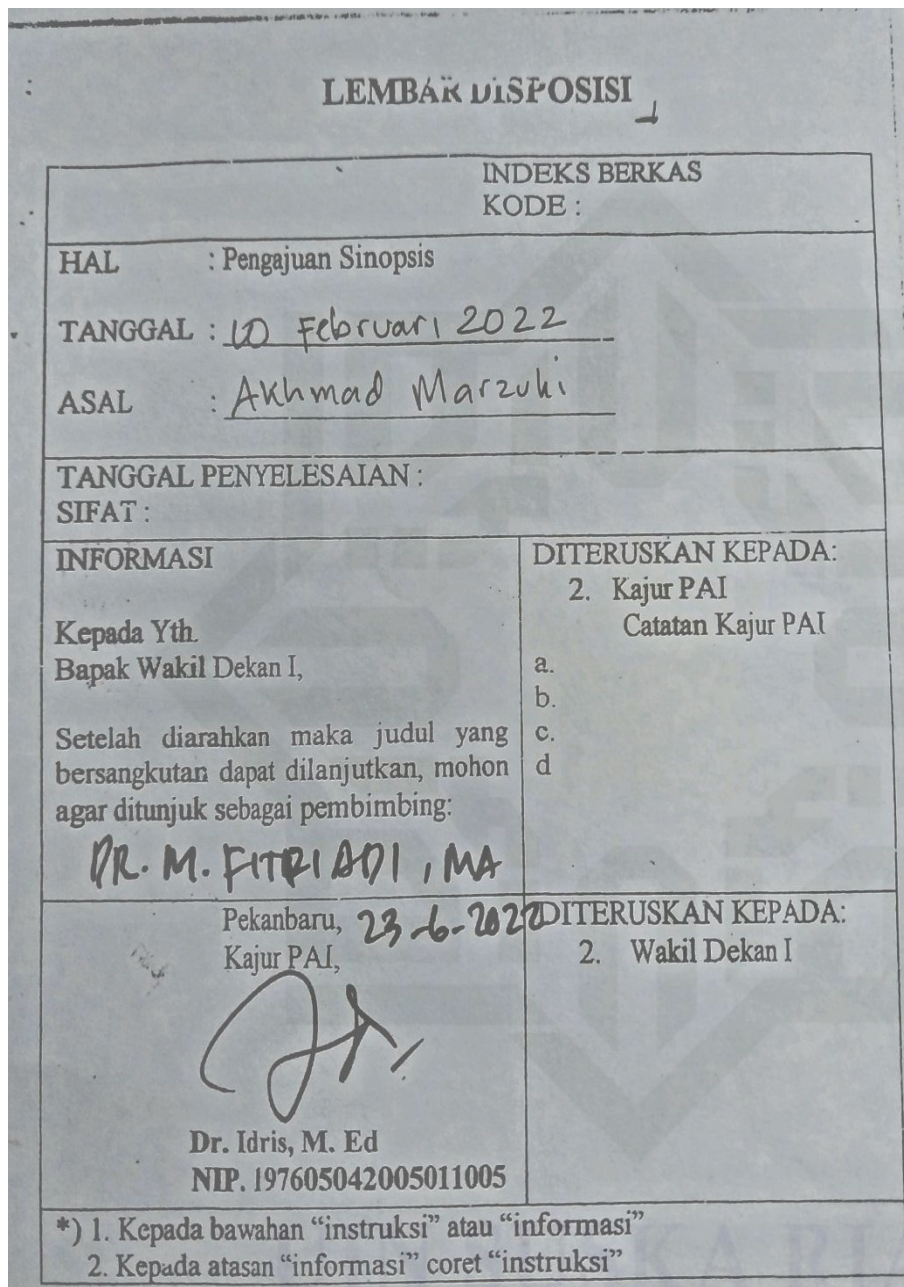 LEMBAR DISPOSISI
INDEKS BERKAS
KODE :
HAL : Pengajuan Sinopsis
TANGGAL : 10 Februari 2022
ASAL : Akhmad Marzuki
TANGGAL PENYELESAIAN :
SIFAT :
INFORMASI
Kepada Yth.
Bapak Wakil Dekan I,
Setelah diarahkan maka judul yang
bersangkutan dapat dilanjutkan, mohon
agar ditunjuk sebagai pembimbing:
DR. M. FITRIADI, MA
DITERUSKAN KEPADA:
2. Kajur PAI
Catatan Kajur PAI
a.
b.
c.
d
Pekanbaru, 23-6-2022
Kajur PAI,
Dr. Idris, M. Ed
NIP. 197605042005011005
DITERUSKAN KEPADA:
2. Wakil Dekan I
*) 1. Kepada bawahan “instruksi” atau “informasi”
2. Kepada atasan “informasi” coret “instruksi”